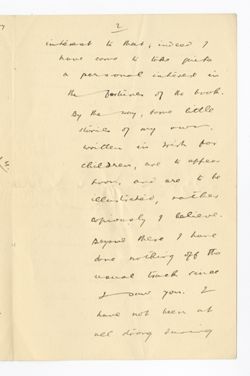 2
interest to that; indeed I
have come to take quite
a personal interest in
the fortunes of the book.
By the way, some little
stories of my own,
written in Irish for
children, are to appear
soon, and are to be
illustrated, rather
copiously I believe.
Beyond these I have
done nothing off the
usual track since
I saw you. I
have not been at
all strong during